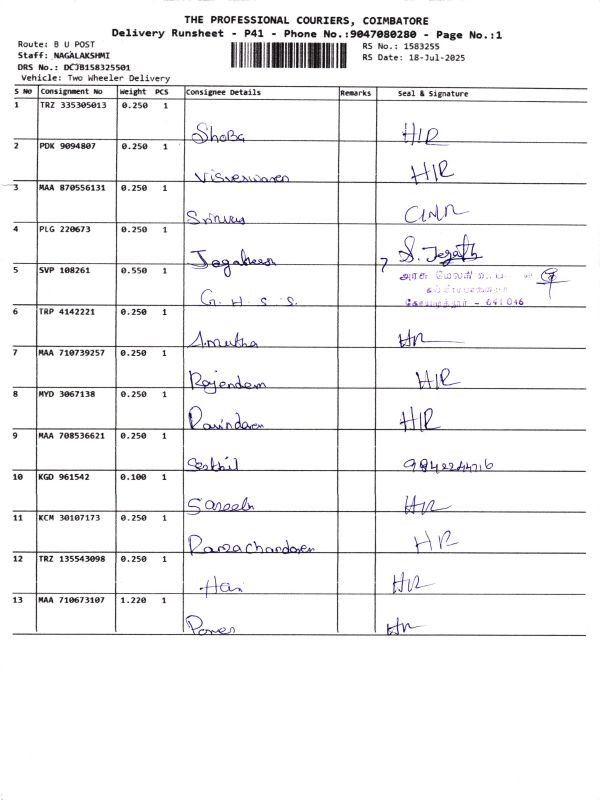 THE PROFESSIONAL COURIERS, COIMBATORE
Delivery Runsheet - P41 - Phone No.:9047080280 - Page No.:1
Route: B U POST
RS No.: 1583255
Staff: NAGALAKSHMI
RS Date: 18-Jul-2025
DRS No.: DCJB158325501
Vehicle: Two Wheeler Delivery
S No Consignment No Weight PCS Consignee Details Remarks Seal & Signature
1 TRZ 335305013 0.250 1
Shoba HIR
2 PDK 9094807 0.250 1
Visveswaren HIR
3 MAA 870556131 0.250 1
Srinivas
4 PLG 220673 0.250 1
Jegatheesn S. Jegath
5 SVP 108261 0.550 1
அரசு
G. H. S. S.
- 641 046
6 TRP 4142221 0.250 1
Amutha HR
7 MAA 710739257 0.250 1
Rajendern HIR
8 MYD 3067138 0.250 1
Ravindaren HIR
9 MAA 708536621 0.250 1
Senthil
10 KGD 961542 0.100 1
HR
11 KCM 30107173 0.250 1
Ramachandaren HR
12 TRZ 135543098 0.250 1
Hari HR
13 MAA 710673107 1.220 1
HR